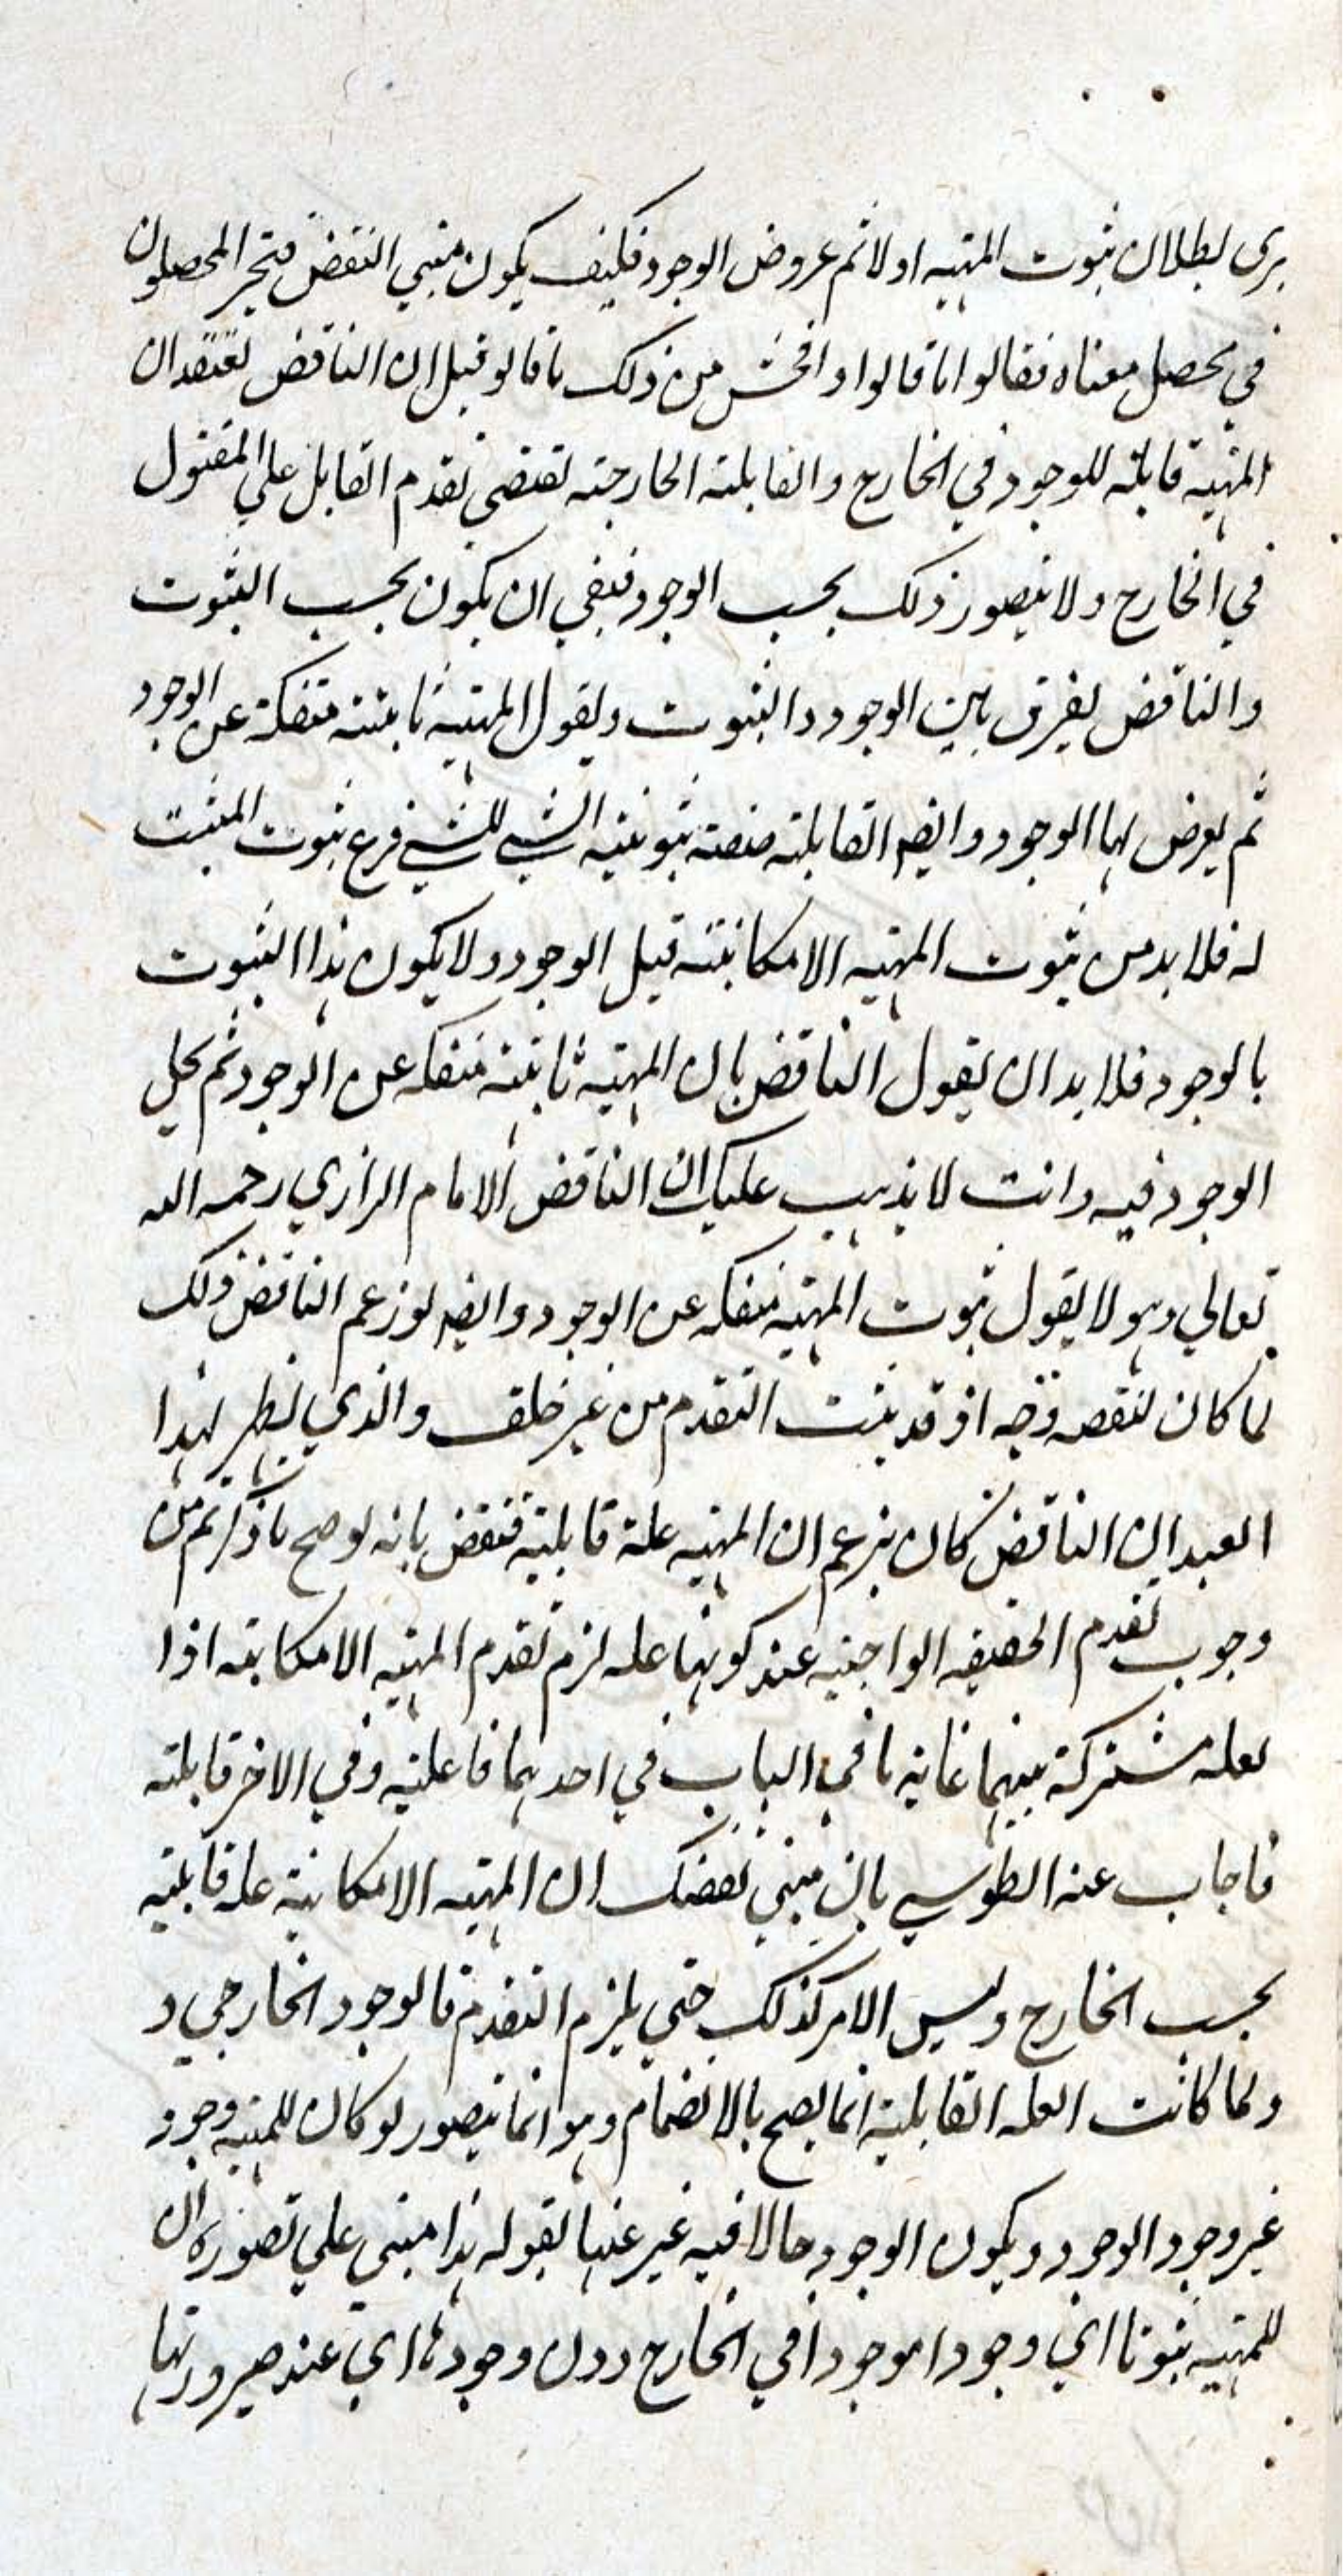 يرى بطلان ثبوت المهية اولا ثم عروض الوجود فكيف يكون مبنى النقض فتحير المحصلون
في محصل معناه فقالوا ما قالوا وافحش من ذلك ما قالو قيل ان الناقض يعتقد ان
المهية قابلة للوجود في الخارج والقابلية الخارجية تقتضي تقدم القابل علي المقبول
في الخارج ولا يتصور ذلك بحسب الوجود فبقي ان يكون بحسب الثبوت
والناقض يفرق بين الوجود والثبوت ويقول المهية ثابتة منفكة عن الوجود
ثم يعرض لها الوجود وايضا القابلية صفة ثبوتية الشي للشي فرع ثبوت المثبت
له فلا بد من ثبوت المهية الامكانية قبل الوجود ولا يكون هذا الثبوت
بالوجود فلا بد ان يقول الناقض بان المهية ثابتة منفكه عن الوجود ثم يحل
الوجود فيه وانت لا يذهب عليك ان الناقض الامام الرازي رحمه الله
تعالي وهو لا يقول ثبوت المهية منفكه عن الوجود وايضا لو زعم الناقض ذلك
لما كان لنقضه وجه اذ قد يثبت التقدم من غير خلف والذي يظهر لهذا
العبد ان الناقض كان يزعم ان المهية علة قابلية فنقض بانه لو صح ما ذكرتم من
وجوب تقدم الحقيقه الواجبيه عند كونها عله لزم تقدم المهية الامكانيه اذا
لعله مشتركة بينهما غاية ما في الباب في احدهما فاعلية وفي الاخر قابلية
فاجاب عنه الطوسي بان مبني نقضك ان المهية الامكانية عله قابلية
بحسب الخارج وليس الامر كذلك حتي يلزم التقدم فالوجود الخارجي و
ولما كانت العله القابلية انما يصح بالانضمام وهو انما يتصور لو كان للمهية وجود
غير وجود الوجود ويكون الوجود حالا فيه غير عنها بقوله هذا مبني علي تصوره ان
للمهية ثبوتا اي وجودا موجودا في الخارج دون وجودها اي عند صيرورتها